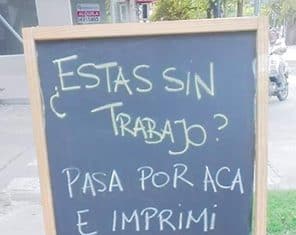 ¿ESTAS SIN
TRABAJO?
PASA POR ACA
E IMPRIMI